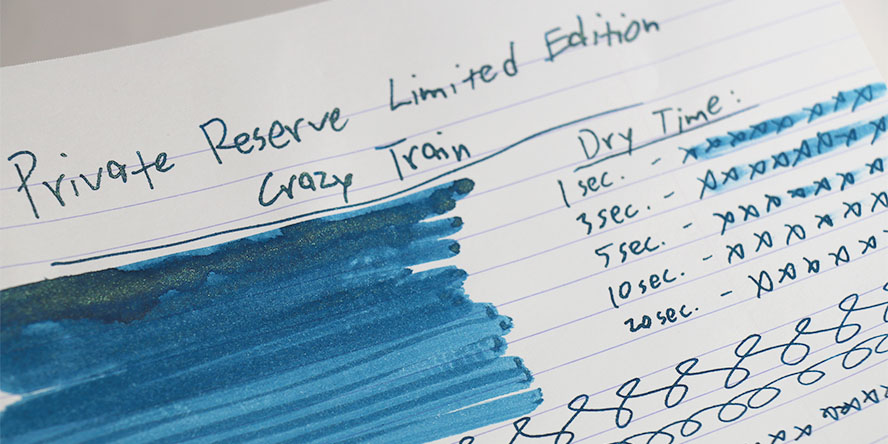 Private Reserve Limited Edition
Crazy Train
Dry Time:
1 sec. - xxxxxxxx
3 sec. - xxxxxxxx
5 sec. - xxxxxxxx
10 sec. - xxxxxxx
20 sec. - xxxxxx